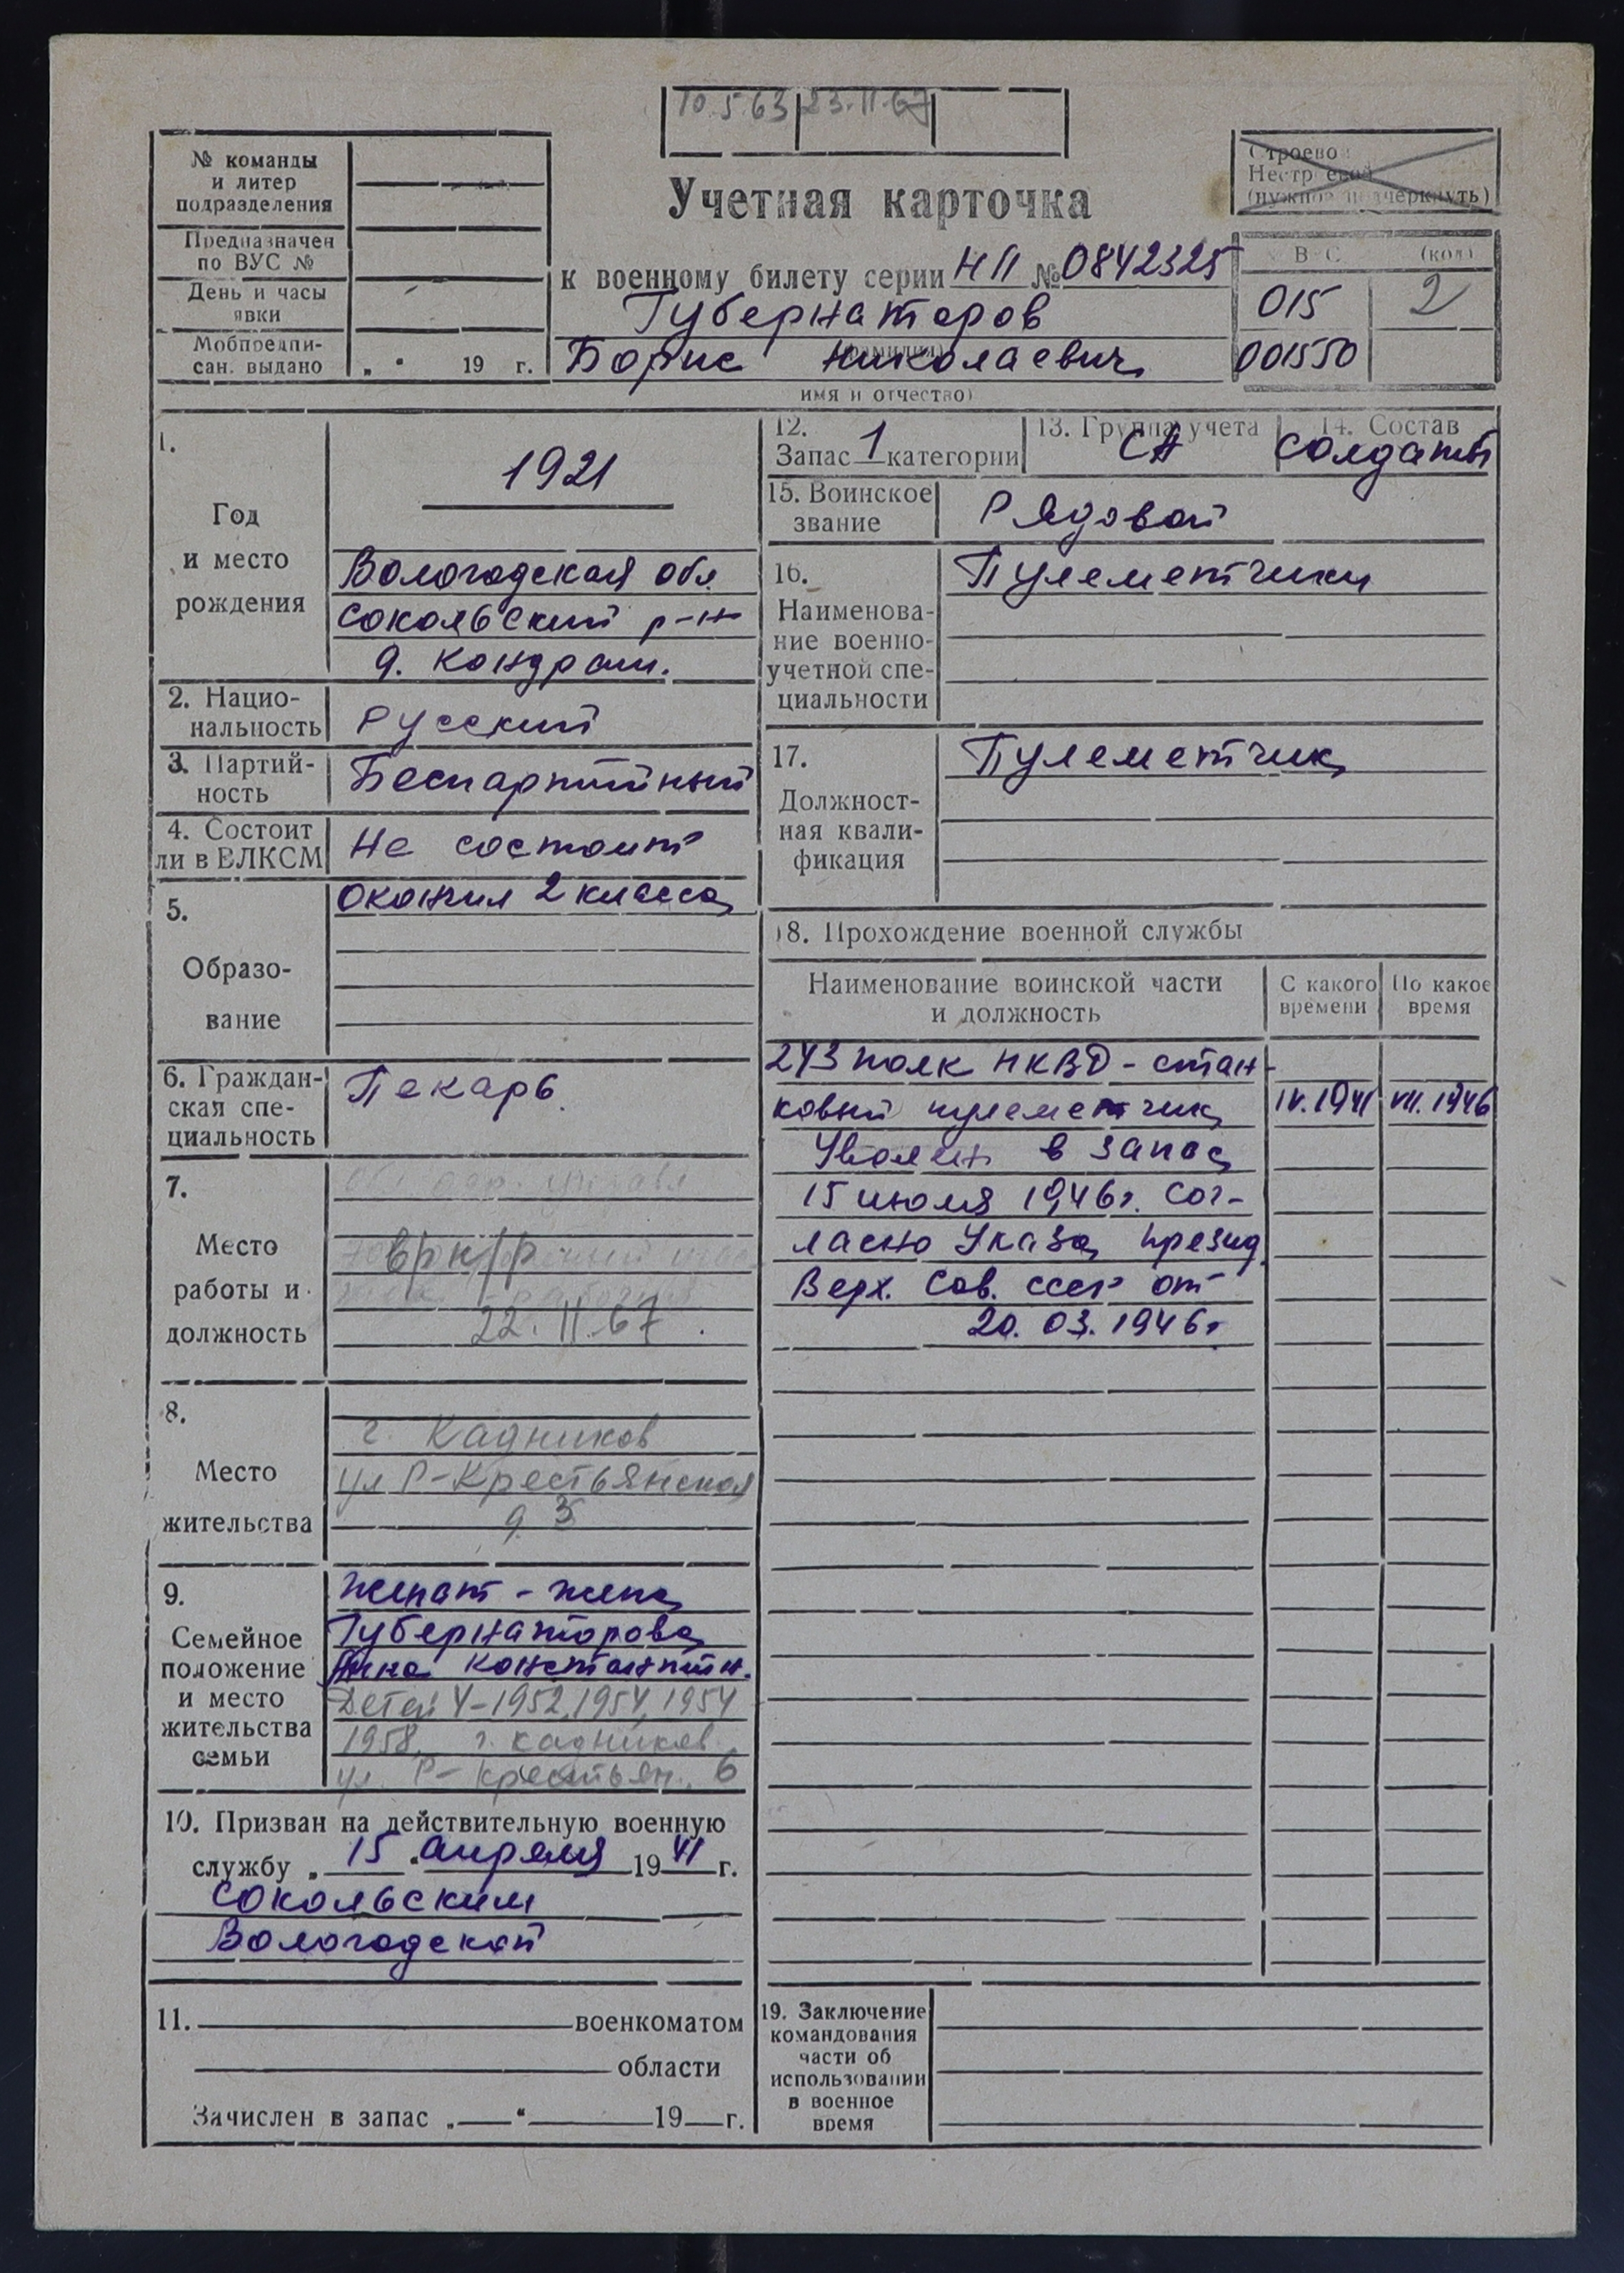 10.5.63 23.II.67
№ команды
и литер
подразделения
Предназначен
по ВУС №
День и часы
явки
Мобпредпи-
сан. выдано „ “ 19 г.
Учетная карточка
к военному билету серии НП № 0842325
Губернаторов
(фамилия)
Борис Николаевич
имя и отчество)
Строевой
Нестроевой
(нужное подчеркнуть)
В С (код)
015 2
001550
1.
Год
и место
рождения
1921
Вологодская обл
Сокольский р-н
д. Кондраш.
2. Нацио-
нальность
Русский
3. Партий-
ность
Беспартийный
4. Состоит
ли в ВЛКСМ
Не состоит
5.
Образо-
вание
Окончил 2 класса
6. Граждан-
ская спе-
циальность
Пекарь.
7.
Место
работы и
должность
врк/р
22.II.67.
8.
Место
жительства
г. Кадников
ул Р-Крестьянская
д. 3
9.
Семейное
положение
и место
жительства
семьи
Женат - жена
Губернаторова
Анна Константин.
Детей 4-1952, 1954, 1954
1958, г. Кадников
ул. Р-Крестьян. 6
10. Призван на действительную военную
службу „ 15 “ апреля 1941 г.
Сокольским
Вологодской
11. военкоматом
области
Зачислен в запас „ “ 19 г.
12.
Запас 1 категории
13. Группа учета
СА
14. Состав
солдаты
15. Воинское
звание
Рядовой
16.
Наименова-
ние военно-
учетной спе-
циальности
Пулеметчики
17.
Должност-
ная квали-
фикация
Пулеметчик
18. Прохождение военной службы
Наименование воинской части
и должность
С какого
времени
По какое
время
243 полк НКВД - стан-
ковый пулеметчик IV.1941 VII.1946
Уволен в запас
15 июля 1946г. сог-
ласно Указа През­ид.
Верх. Сов. СССР от
20.03.1946г
19. Заключение
командования
части об
использовании
в военное
время